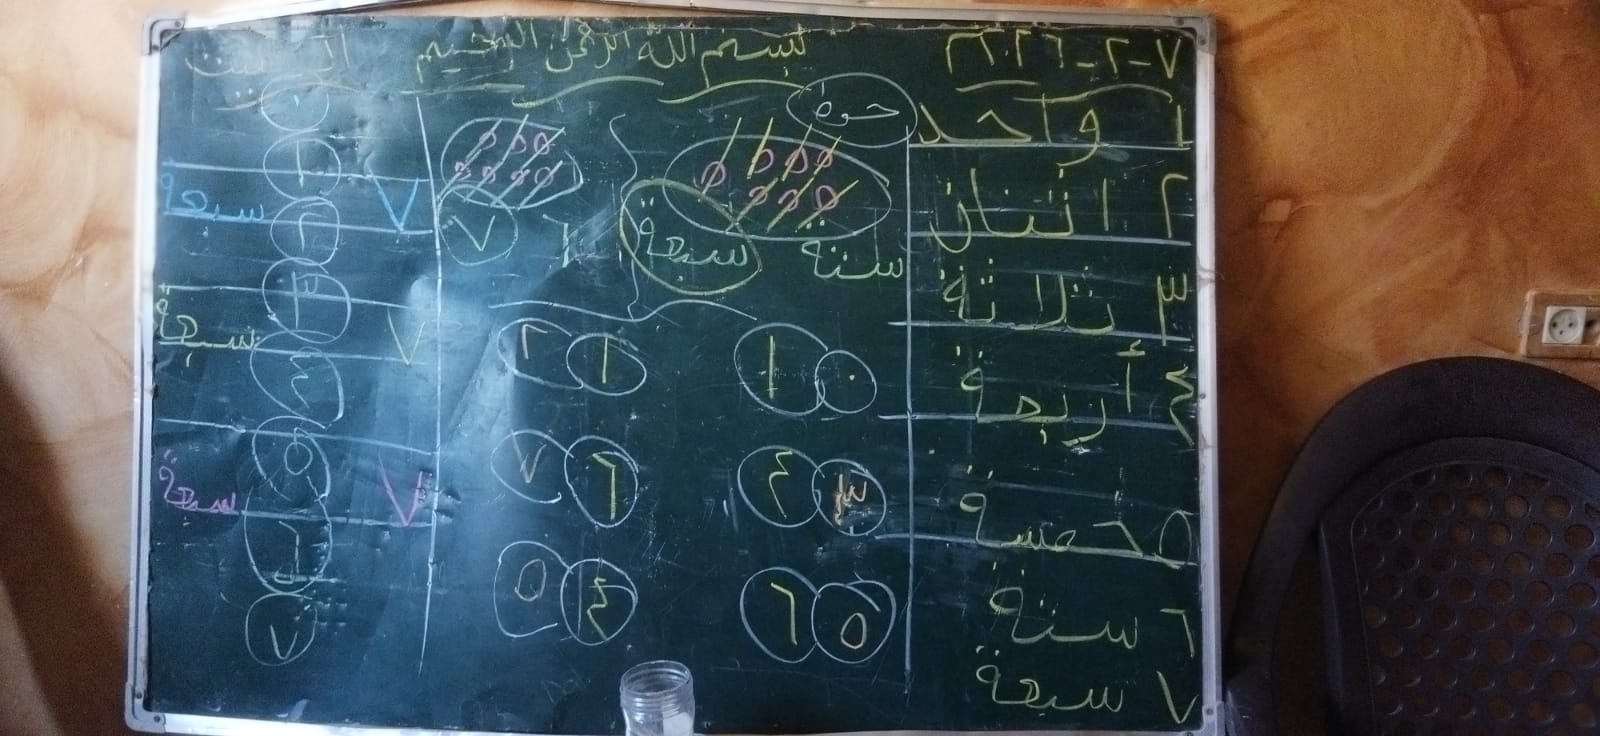 ٧-٢-٢٠٢٦م
بسم الله الرحمن الرحيم
البيت
١ واحد
٢ اثنان
٣ ثلاثة
٤ أربعة
٥ خمسة
٦ ستة
٧ سبعة
حوط
ستة سبعة
٦ ٧
٠ ١
١ ٢
٣ ٤
٦ ٧
٥ ٦
٤ ٥
٧ سبعة
٧ سبعة
٧ سبعة
٠
١
٢
٣
٤
٥
٦
٧